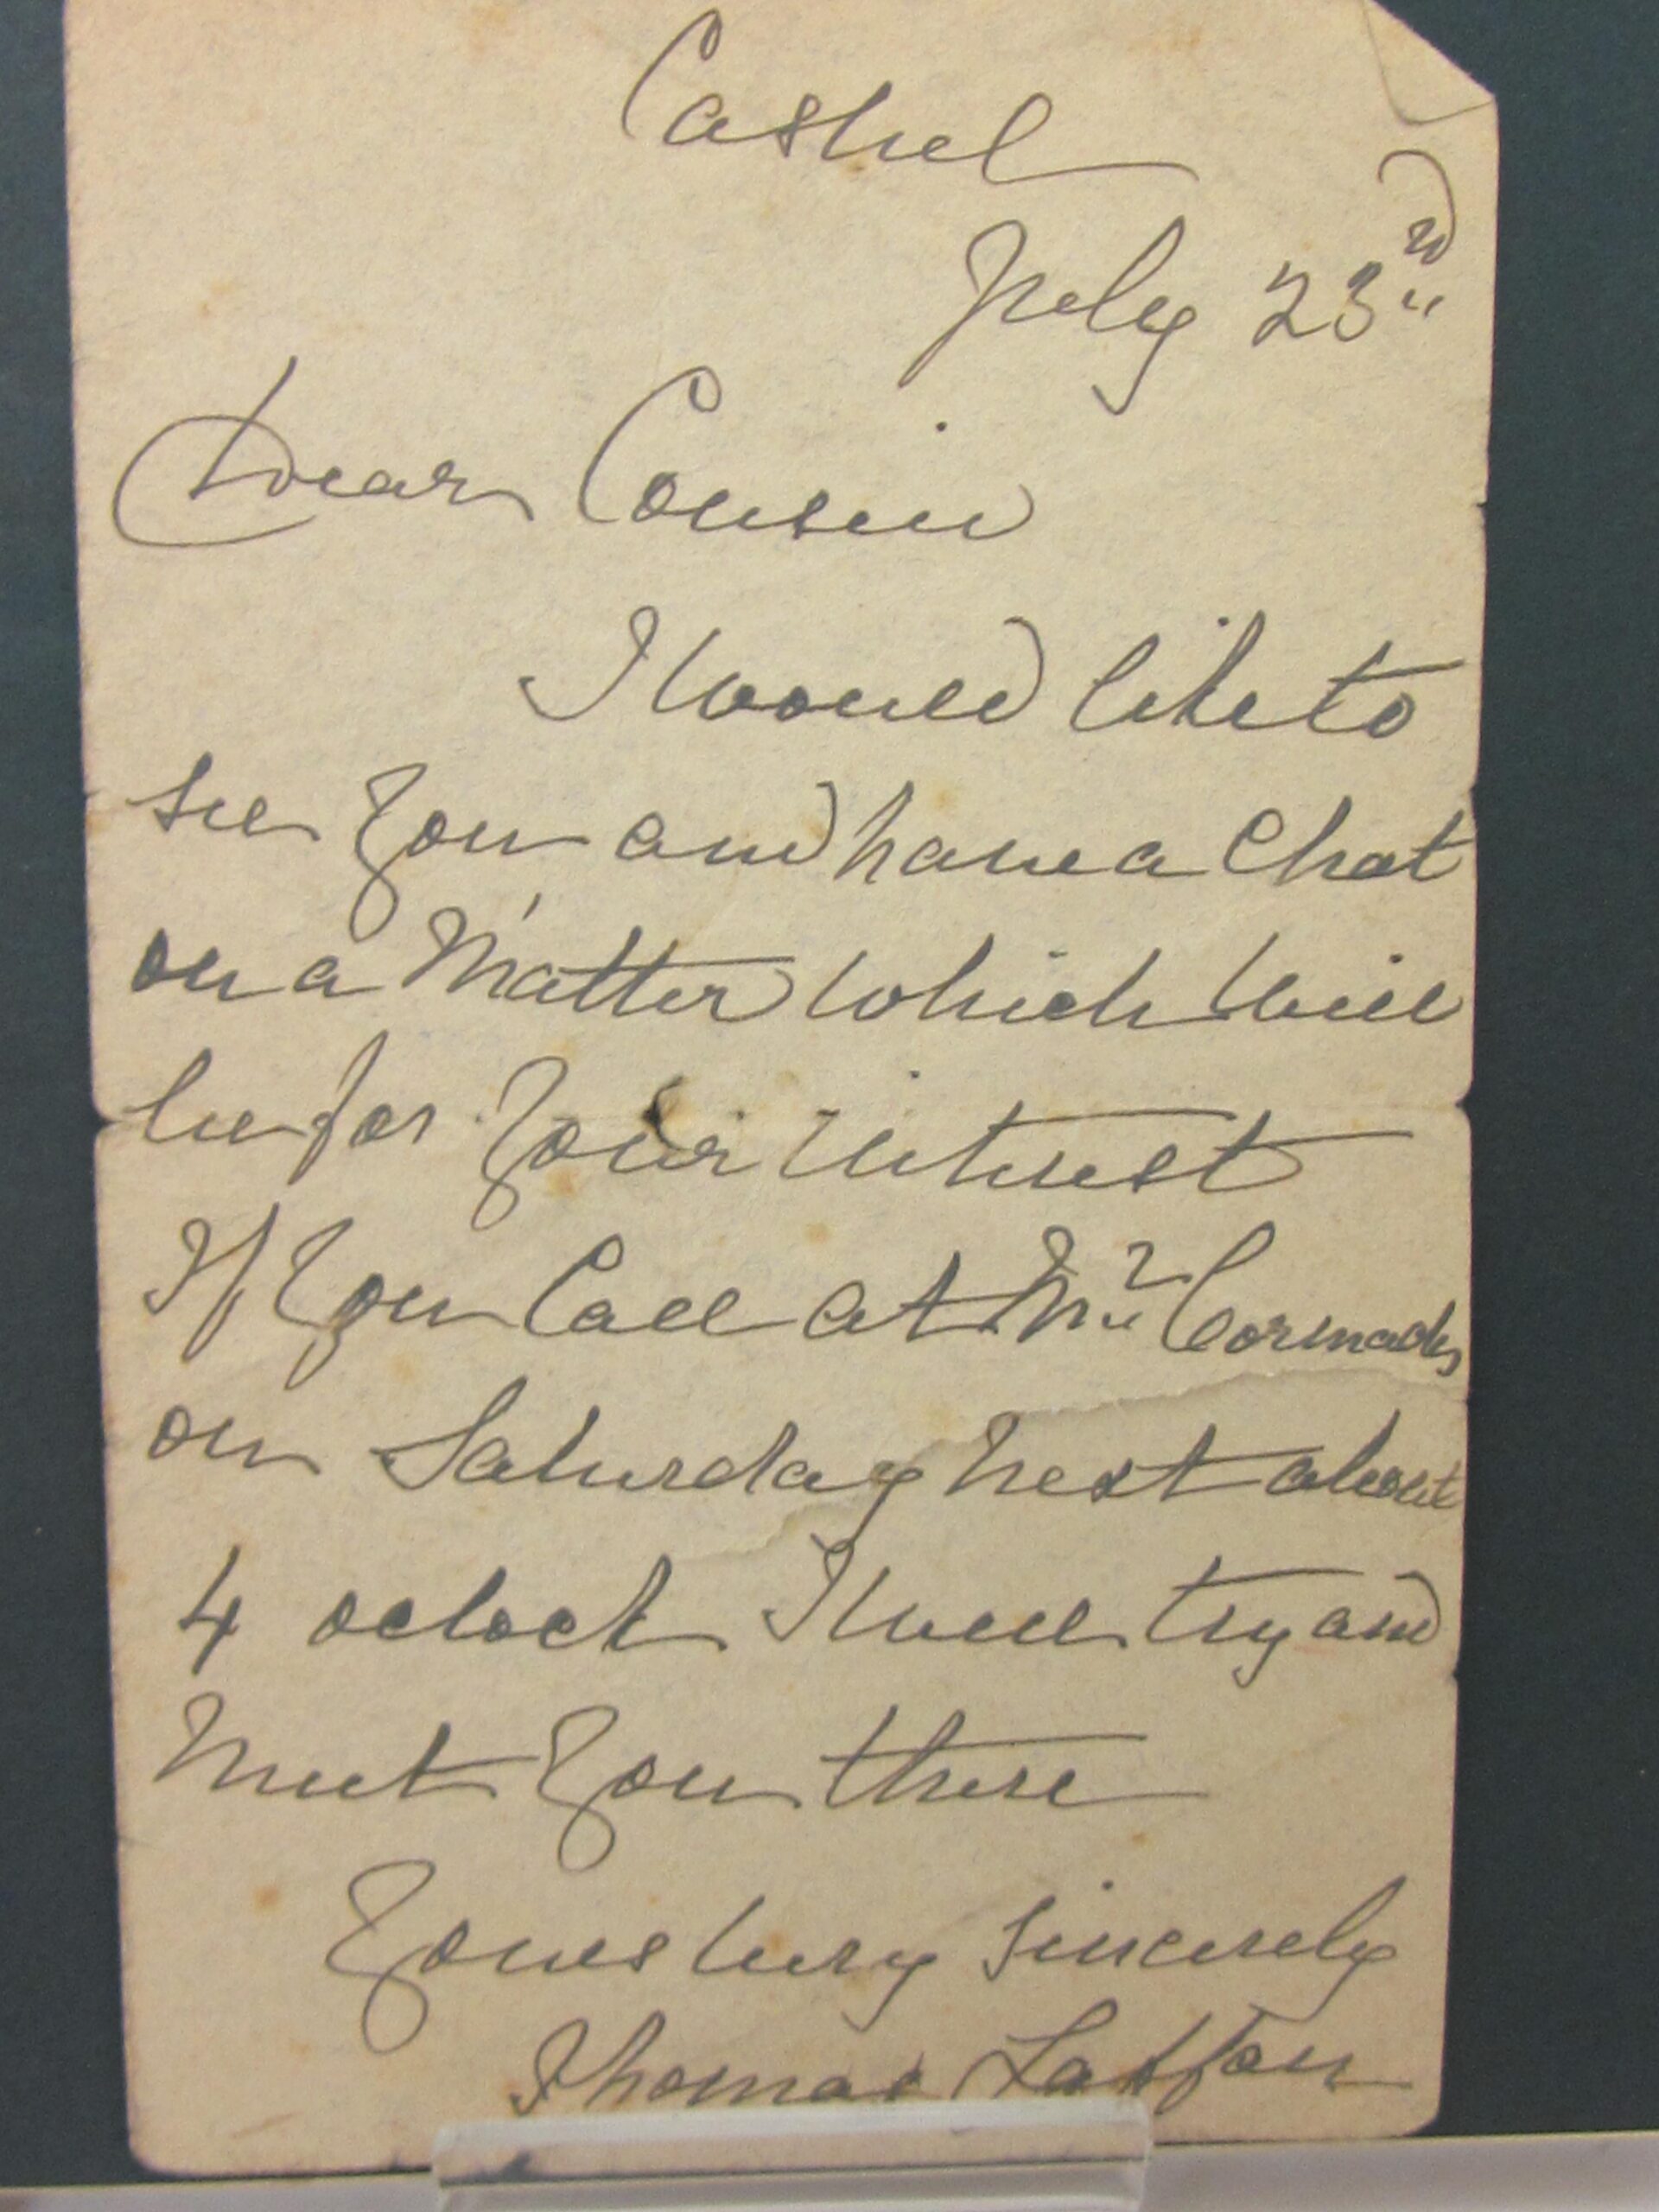 Cashel
July 23rd
Dear Cousin
I would like to
see You and have a Chat
on a Matter which will
be for Your interest
If You Call at Mr Cormacks
on Saturday next about
4 oclock I will try and
Meet You there
Yours very sincerely
Thomas Laffan